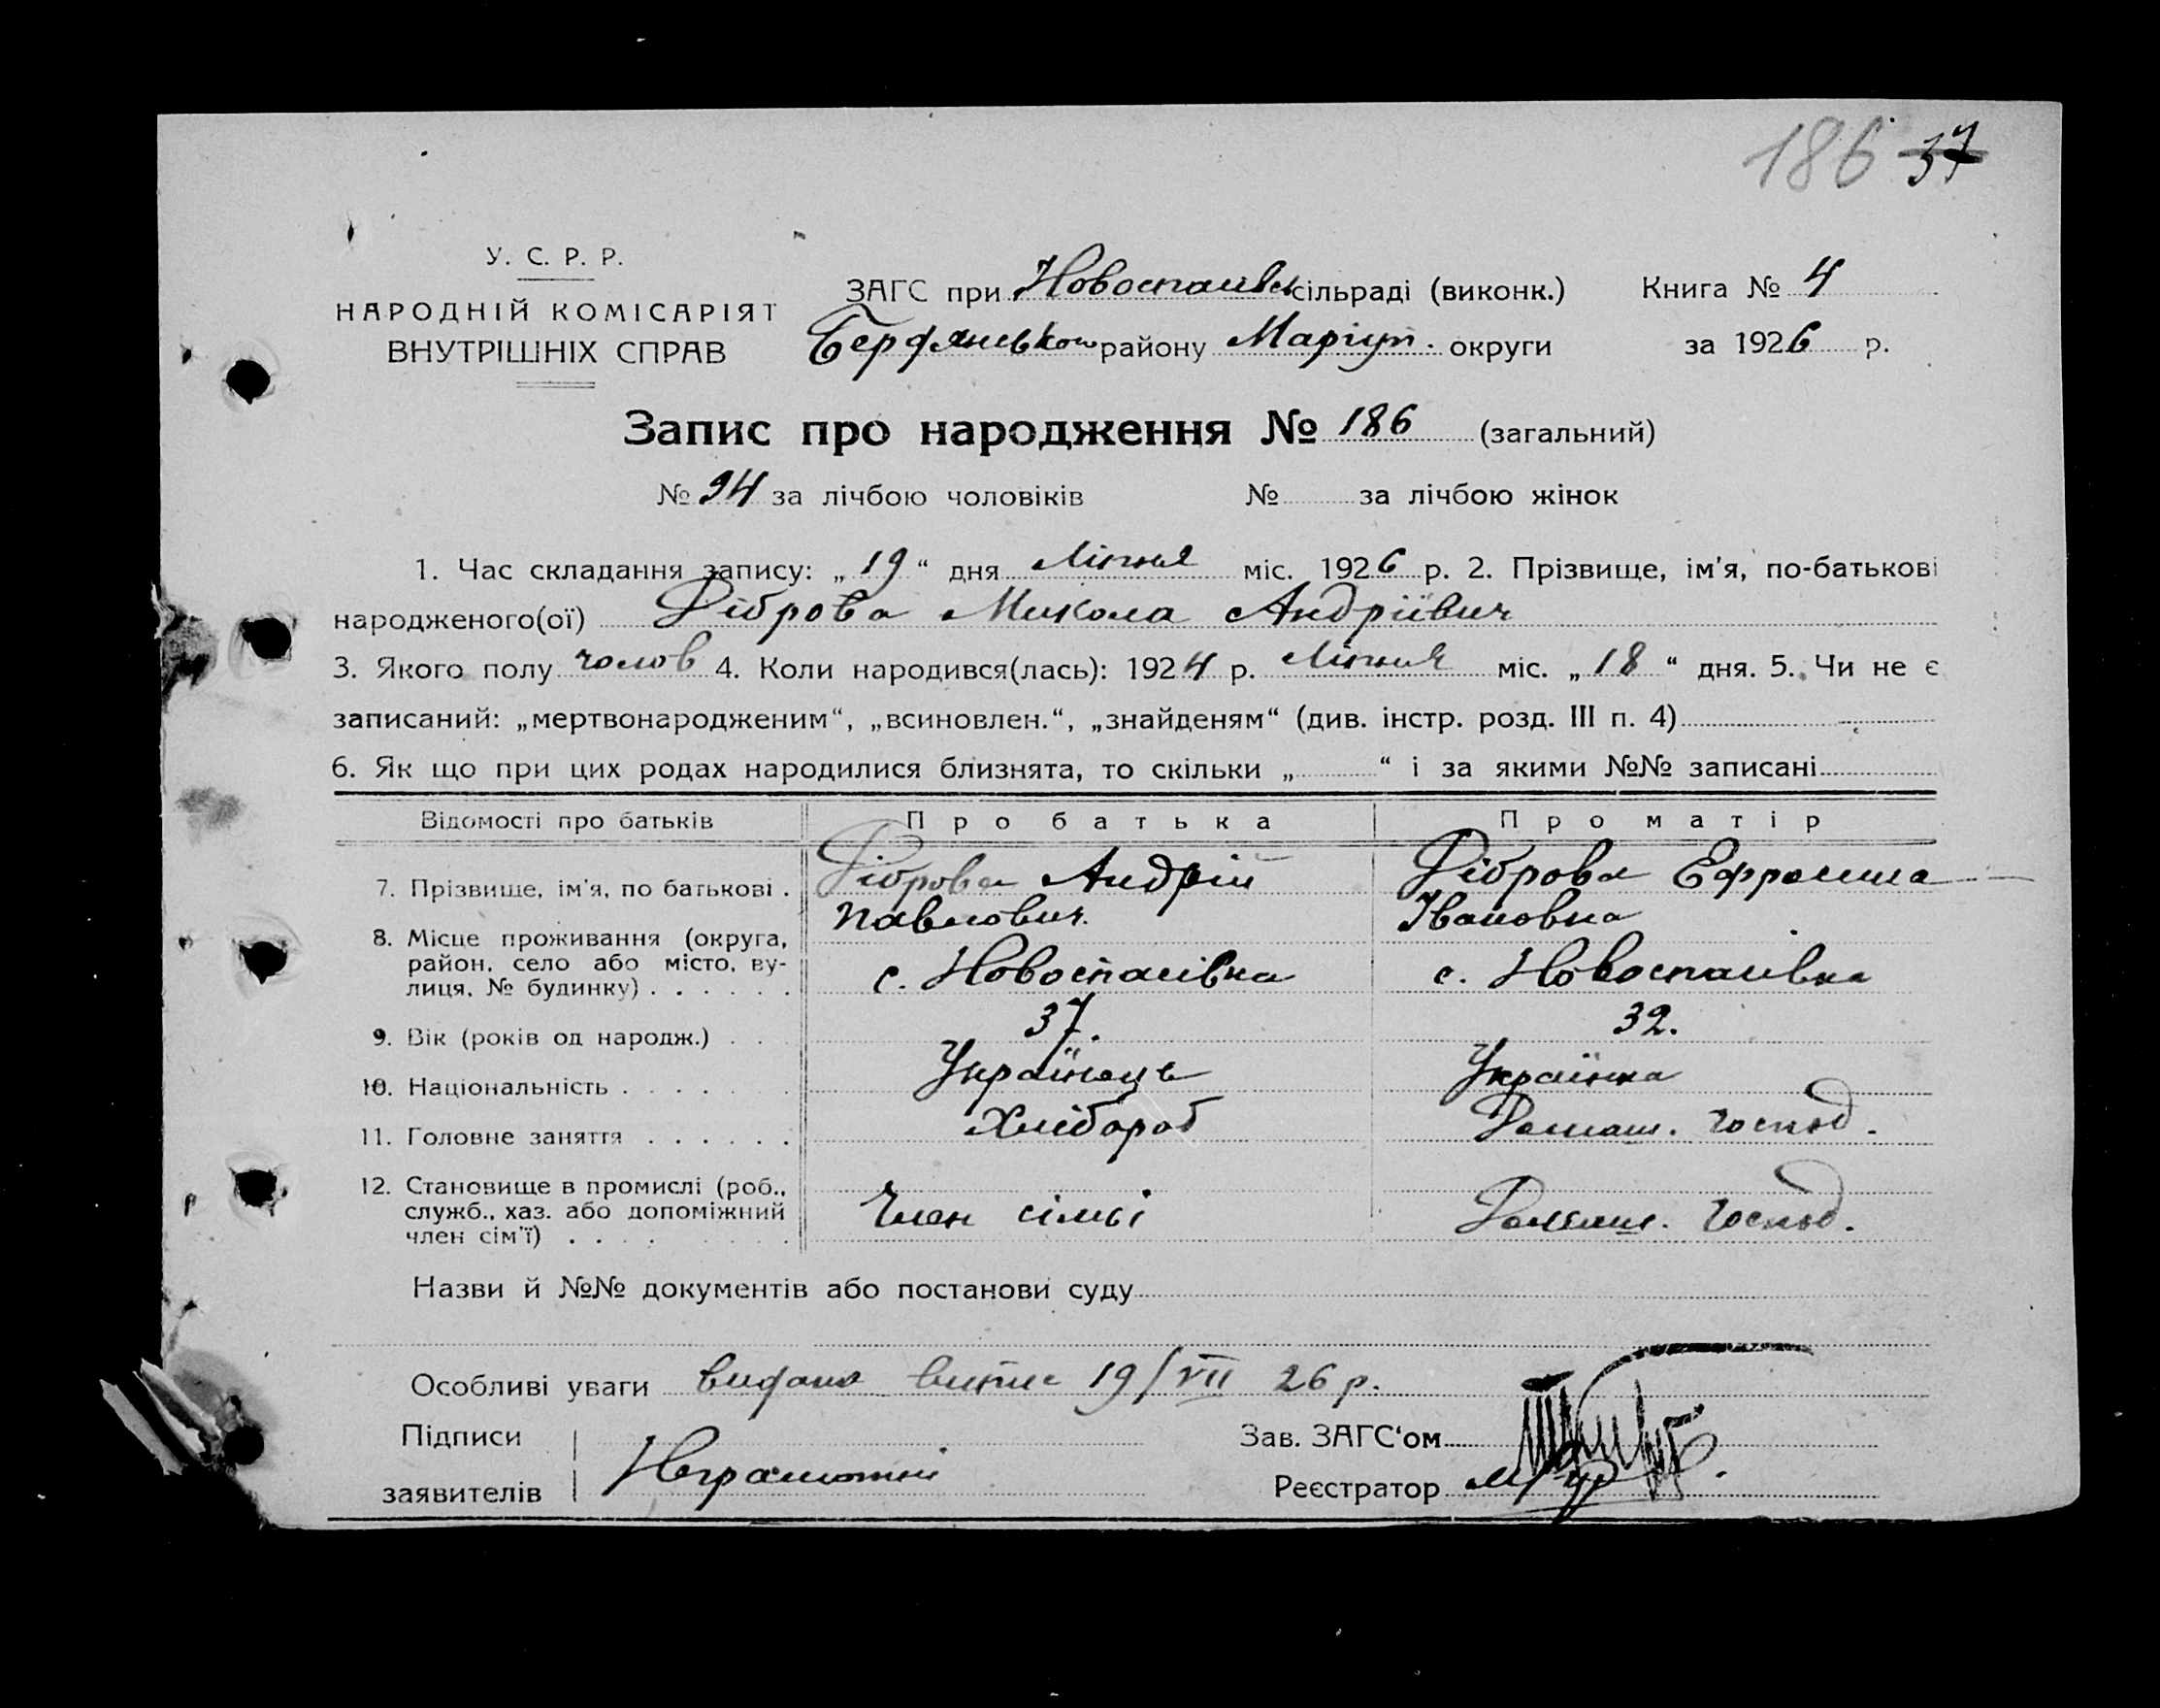 186 37
У. С. Р. Р.
НАРОДНІЙ КОМІСАРІЯТ
ВНУТРІШНІХ СПРАВ
ЗАГС при Новоспаївськ сільраді (виконк.) Книга № 4
Бердянського району Маріуп. округи за 1926 р.
Запис про народження № 186 (загальний)
№ 94 за лічбою чоловіків № за лічбою жінок
1. Час складання запису: „ 19 “ дня Липня міс. 1926 р. 2. Прізвище, ім'я, по-батькові
народженого(ої) Діброва Микола Андріївич
3. Якого полу чолов 4. Коли народився(лась): 1924 р. Липня міс. „ 18 “ дня. 5. Чи не є
записаний: „мертвонародженим“, „всиновлен.“, „знайденям“ (див. інстр. розд. III п. 4)
6. Як що при цих родах народилися близнята, то скільки „ “ і за якими №№ записані
Відомості про батьків Про батька Про матір
7. Прізвище, ім'я, по батькові . Діброва Андрій Діброва Ефросина
Павлович. Івановна
8. Місце проживання (округа,
район, село або місто, ву-
лиця, № будинку) . . . . . . с. Новоспасівка с. Новоспасівка
9. Вік (років од народж.) . . . 37. 32.
10. Національність . . . . . . Українець Українка
11. Головне заняття . . . . . . Хлібороб Домаш. господ.
12. Становище в промислі (роб.,
служб., хаз. або допоміжний
член сім'ї) . . . . Член сімьі Домаш. господ.
Назви й №№ документів або постанови суду
Особливі уваги видана випис 19/VII 26 р.
Підписи
заявителів Неграмотній
Зав. ЗАГС'ом
Реєстратор